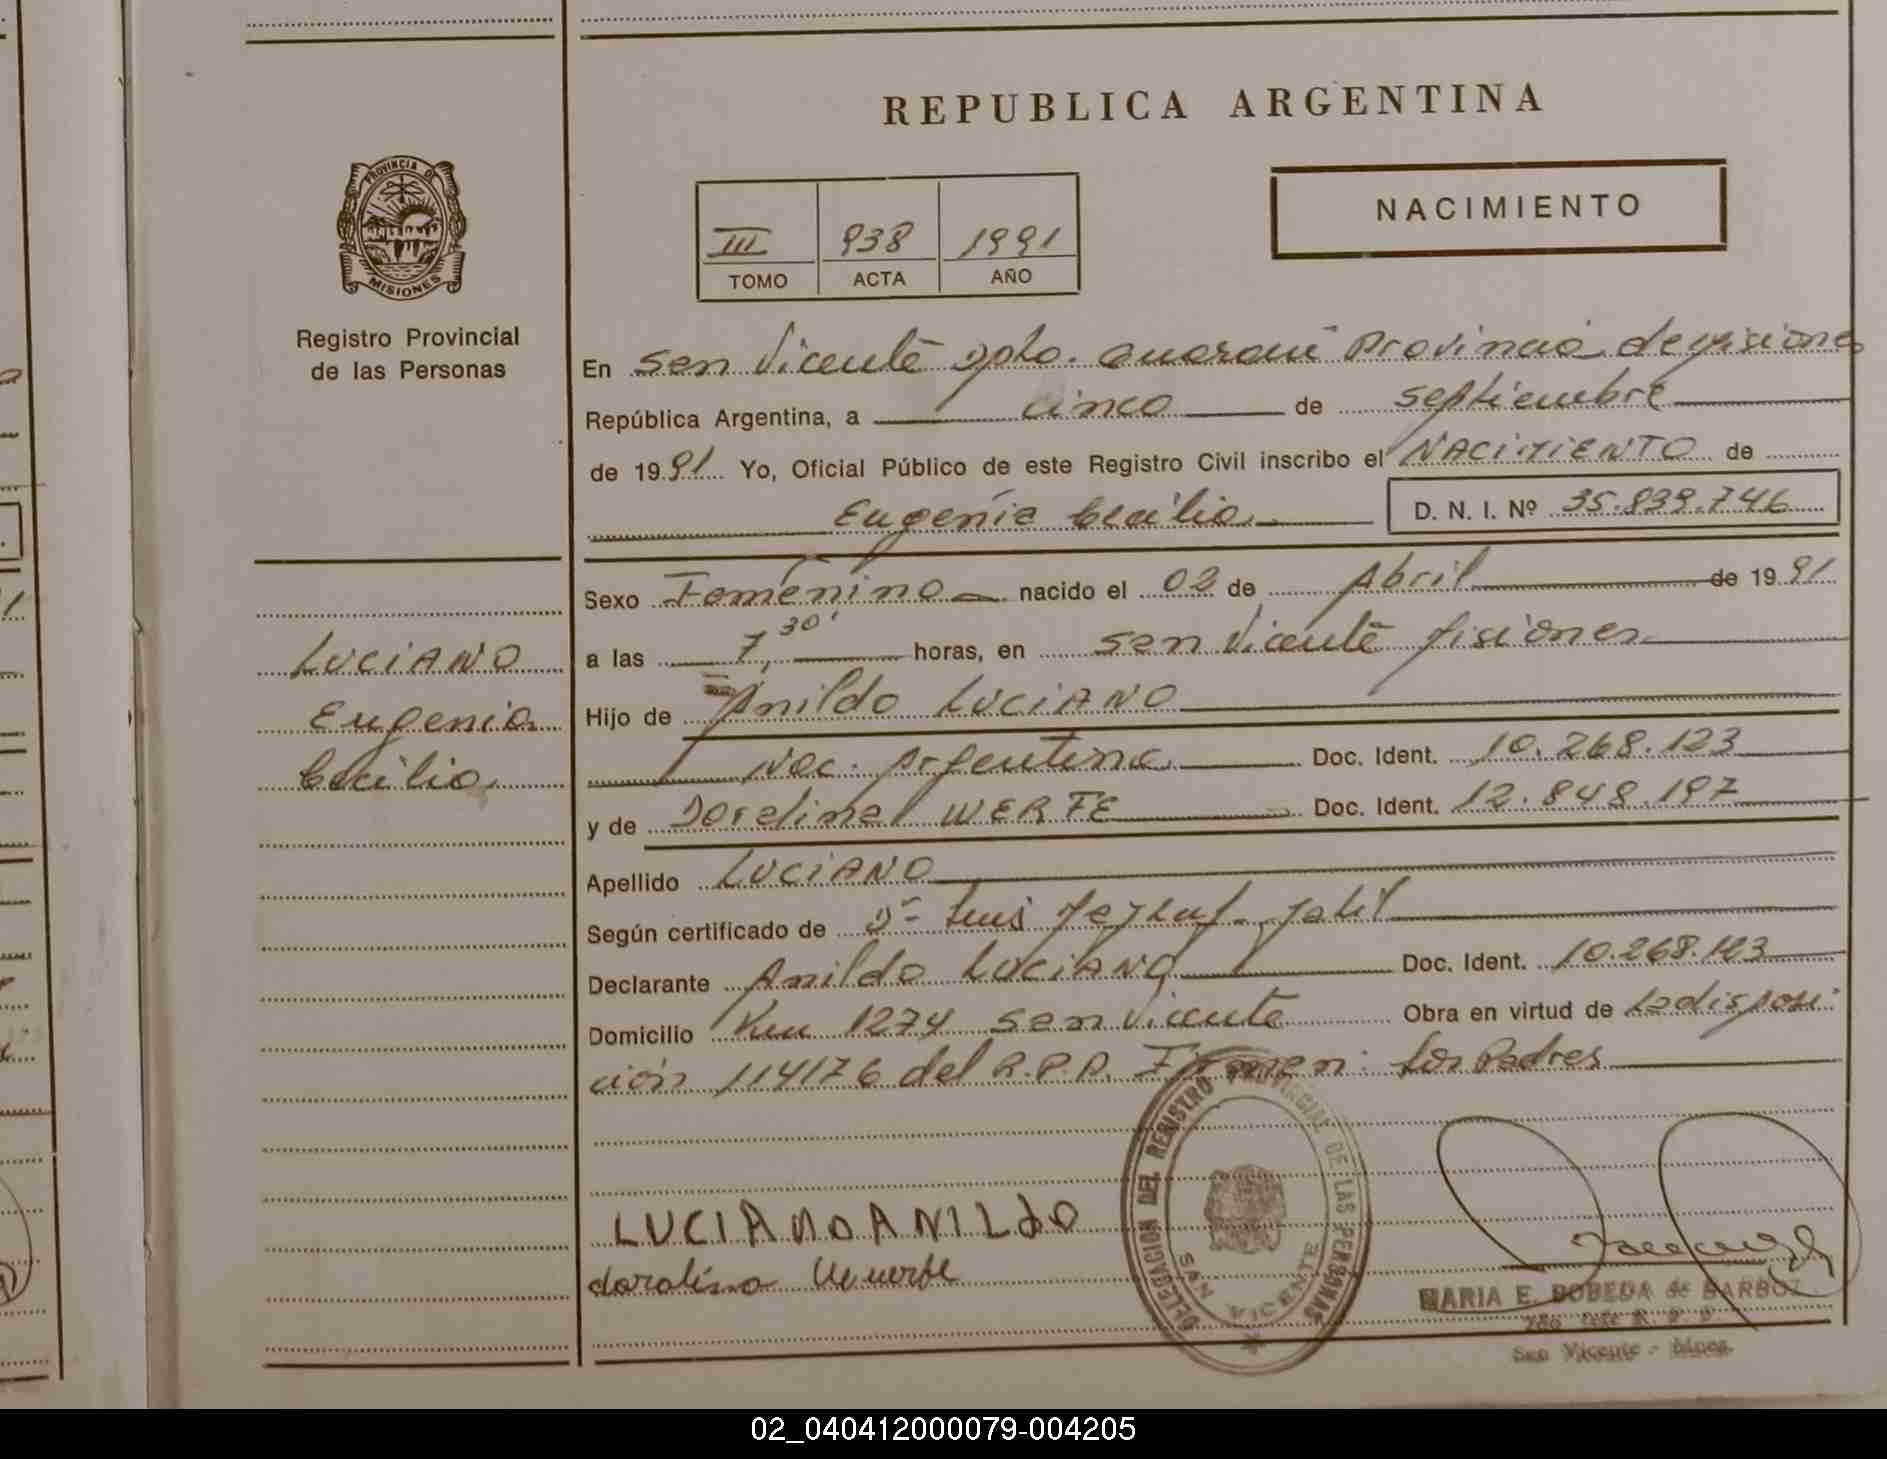 REPUBLICA ARGENTINA
PROVINCIA DE
MISIONES
Registro Provincial
de las Personas
III 938 1991
TOMO ACTA AÑO
NACIMIENTO
En San Vicente Dpto. Guaraní Provincia de Misiones
República Argentina, a cinco de septiembre
de 1991 Yo, Oficial Público de este Registro Civil inscribo el NACIMIENTO de
Eugenia Cecilia D. N. I. Nº 35.839.746
LUCIANO
Eugenia
Cecilia
Sexo Femenino nacido el 02 de Abril de 1991
a las 7,30' horas, en San Vicente Misiones
Hijo de Anildo LUCIANO
Nac. Argentina Doc. Ident. 10.268.123
y de Dorelina WERFE Doc. Ident. 12.848.197
Apellido LUCIANO
Según certificado de Dr Luis
Declarante Anildo LUCIANO Doc. Ident. 10.268.123
Domicilio Km 1274 San Vicente Obra en virtud de La disposi
ción 114176 del R.P.P. Firman: Los Padres
LUCIANO ANILDO
DELEGACION DEL REGISTRO PROVINCIAL DE LAS PERSONAS
SAN VICENTE
MARIA E. POBEDA de BARBOZ
San Vicente - Mnes.
02_040412000079-004205